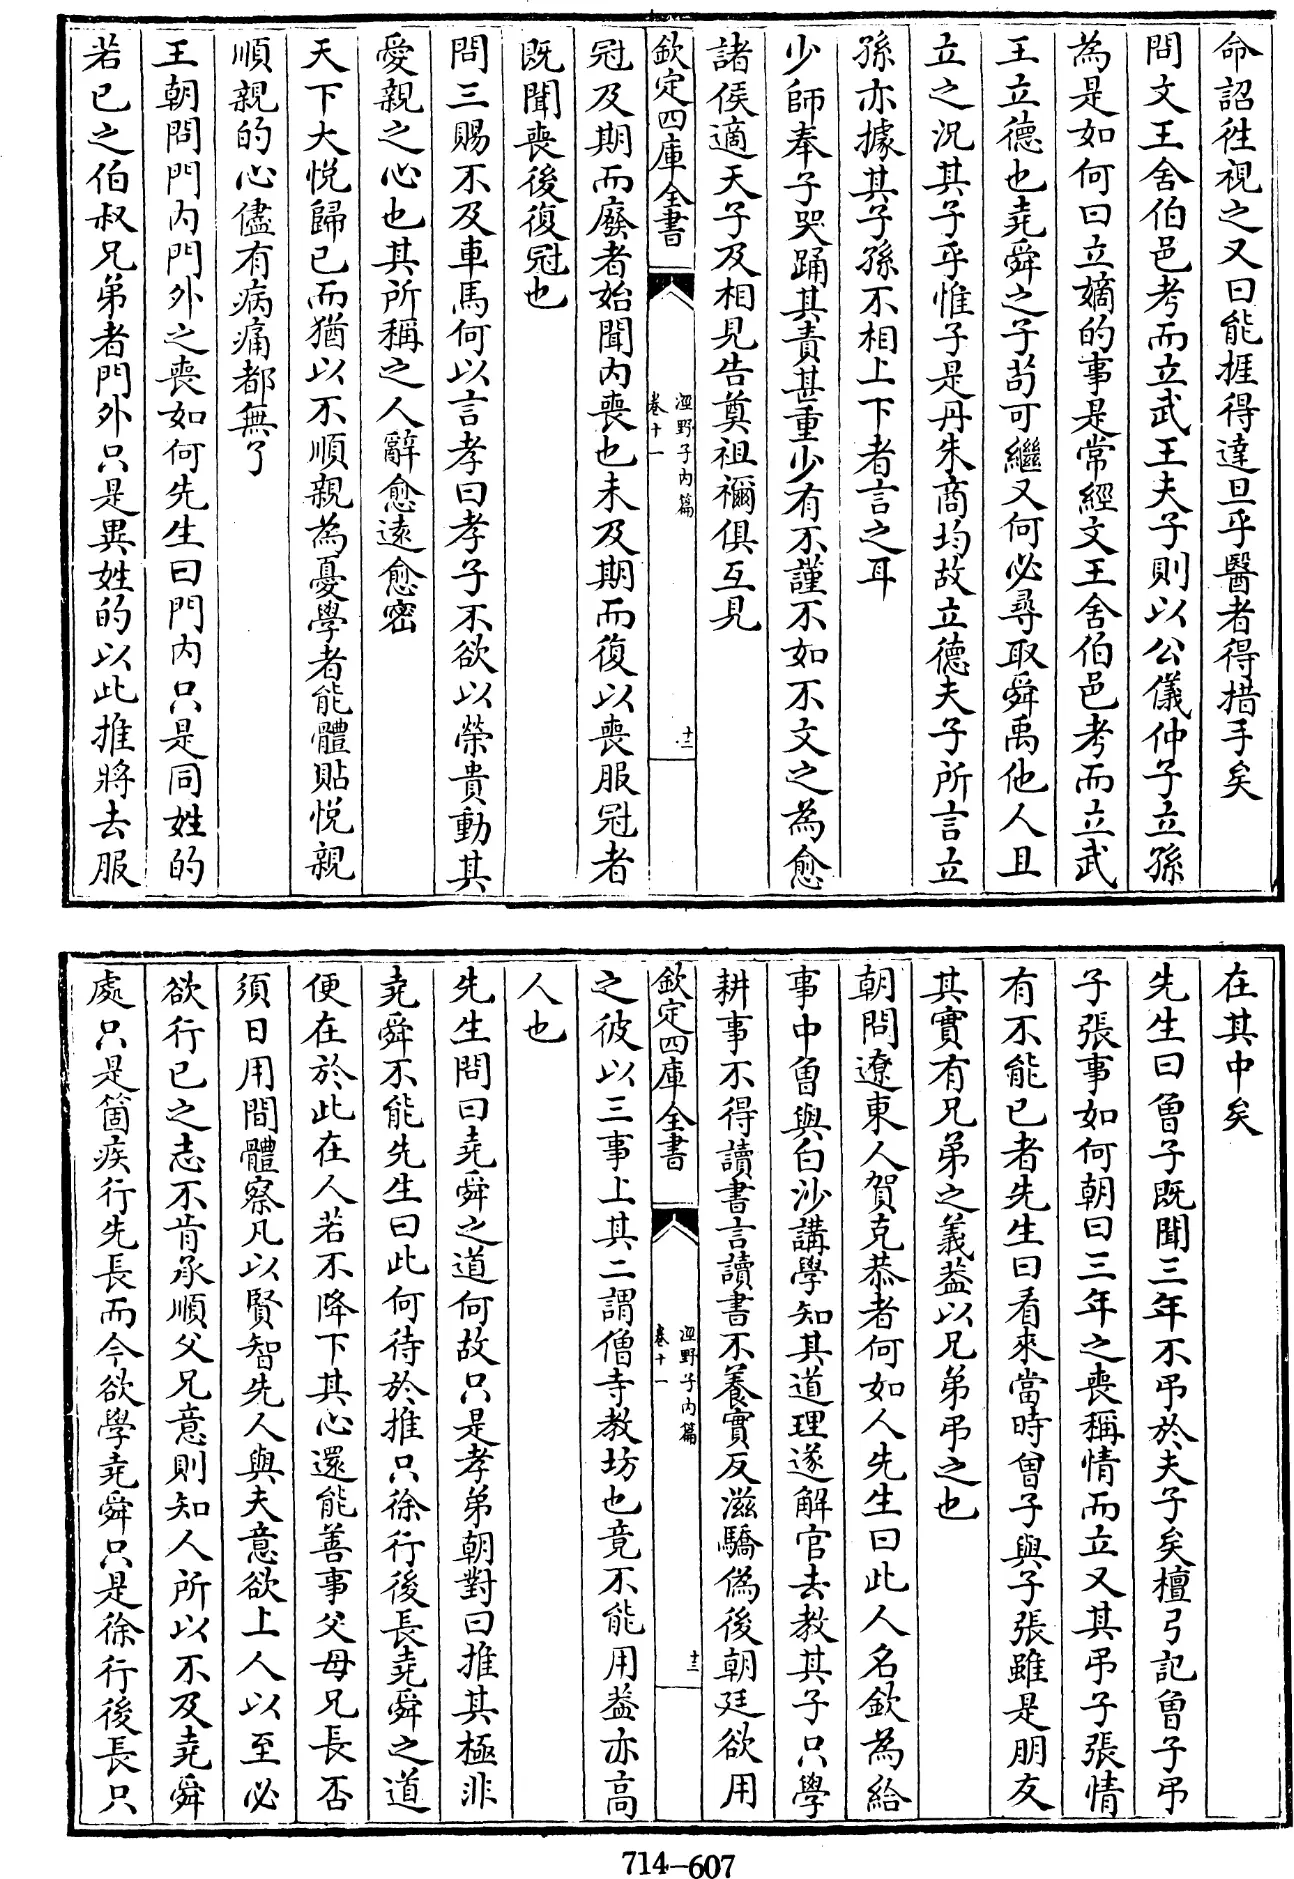 命詔徃視之又曰能捱得達旦乎醫者得措手矣
問文王舍伯邑考而立武王夫子則以公儀仲子立孫
為是如何曰立嫡的事是常經文王舍伯邑考而立武
王立德也堯舜之子茍可繼又何必尋取舜禹他人且
立之況其子乎惟子是丹朱商均故立德夫子所言立
孫亦據其子孫不相上下者言之耳
少師奉子哭踊其責甚重少有不謹不如不文之為愈
諸侯適天子及相見告奠祖禰俱互見
欽定四庫全書
涇野子内篇
卷十一
十二
冠及期而廢者始聞内喪也未及期而復以喪服冠者
既聞喪後復冠也
問三賜不及車馬何以言孝曰孝子不欲以榮貴動其
愛親之心也其所稱之人辭愈遠愈密
天下大悅歸已而猶以不順親為憂學者能體貼悅親
順親的心儘有病痛都無了
王朝問門内門外之喪如何先生曰門内只是同姓的
若已之伯叔兄弟者門外只是異姓的以此推將去服
在其中矣
先生曰曾子既聞三年不弔於夫子矣檀弓記曾子弔
子張事如何朝曰三年之喪稱情而立又其弔子張情
有不能已者先生曰看來當時曾子與子張雖是朋友
其實有兄弟之義葢以兄弟弔之也
朝問遼東人賀克恭者何如人先生曰此人名欽為給
事中曾與白沙講學知其道理遂解官去教其子只學
耕事不得讀書言讀書不養實反滋驕偽後朝廷欲用
欽定四庫全書
涇野子内篇
卷十一
十三
之彼以三事上其二謂僧寺教坊也竟不能用葢亦高
人也
先生問曰堯舜之道何故只是孝弟朝對曰推其極非
堯舜不能先生曰此何待於推只徐行後長堯舜之道
便在於此在人若不降下其心還能善事父母兄長否
須日用間體察凡以賢智先人與夫意欲上人以至必
欲行已之志不肯承順父兄意則知人所以不及堯舜
處只是箇疾行先長而今欲學堯舜只是徐行後長只
714-607